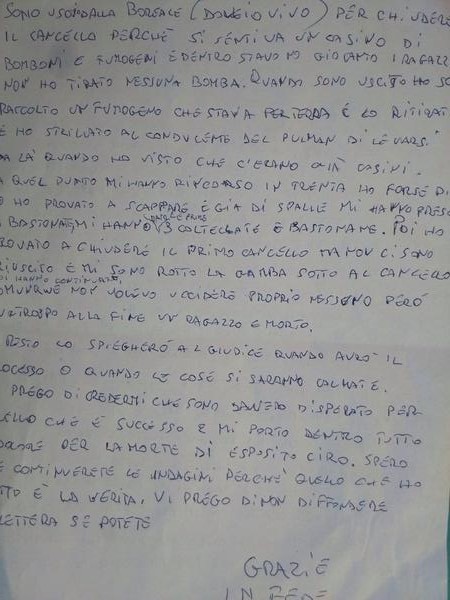 SONO USCITO DALLA BOREALE (DOVE IO VIVO) PER CHIUDERE
IL CANCELLO PERCHÈ SI SENTIVA UN CASINO DI
BOMBONI E FUMOGENI E DENTRO STAVANO GIOCANTO I RAGAZZI
NON HO TIRATO NESSUNA BOMBA. QUANDO SONO USCITO HO SO
RACCOLTO UN FUMOGENO CHE STAVA PER TERRA E LO RITIRAT
E HO STRILLATO AL CONDUCENTE DEL PULMAN DI LEVARSI
DA LÀ QUANDO HO VISTO CHE C'ERANO GIÀ CASINI.
A QUEL PUNTO MI HANNO RINCORSO IN TRENTA HO FORSE DI
O HO PROVATO A SCAPPARE E GIA DI SPALLE MI HANNO PRESO
A BASTONATE MI HANNO 3 COLTELLATE E BASTONATE. POI HO
ROVATO A CHIUDERE IL PRIMO CANCELLO MA NON CI SONO
RIUSCITO E MI SONO ROTTO LA GAMBA SOTTO AL CANCELLO
OMUNQUE NON VOLEVO UCCIDERE PROPRIO NESSUNO PERÒ
URTROPPO ALLA FINE UN RAGAZZO E MORTO.
RESTO LO SPIEGHERÒ AL GIUDICE QUANDO AVRO' IL
OCESSO O QUANDO LE COSE SI SARANNO CALMATE.
PREGO DI CREDERMI CHE SONO DAVVERO DISPERATO PER
ELLO CHE È SUCCESSO E MI PORTO DENTRO TUTTO
DOLORE PER LA MORTE DI ESPOSITO CIRO. SPERO
E CONTINUERETE LE INDAGINI PERCHE' QUELLO CHE HO
TTO È LA VERITÀ, VI PREGO DI NON DIFFONDERE
LETTERA SE POTETE
GRAZIE
IN FEDE